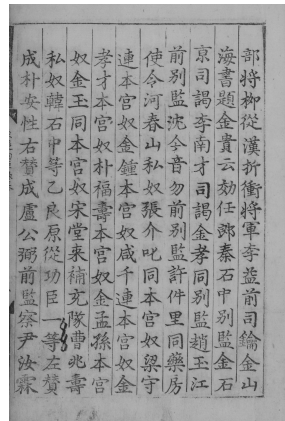 部將柳從漢折衝將軍李益前司鑰金山
海書題金貴云効任郞秦石中別監金石
京司謁李南才司謁金孝同別監趙玉江
前別監沈今音勿前別監許件里同藥房
使令河春山私奴張介叱同本宮奴梁守
連本宮奴金鍾本宮奴咸千連本宮奴金
孝才本宮奴朴福壽本宮奴金孟孫本宮
奴金玉同本宮奴宋堂來補充隊曹兆壽
私奴韓石中等乙良原從功臣一等左贊
成朴安性右賛成盧公弼前監察尹汝霖